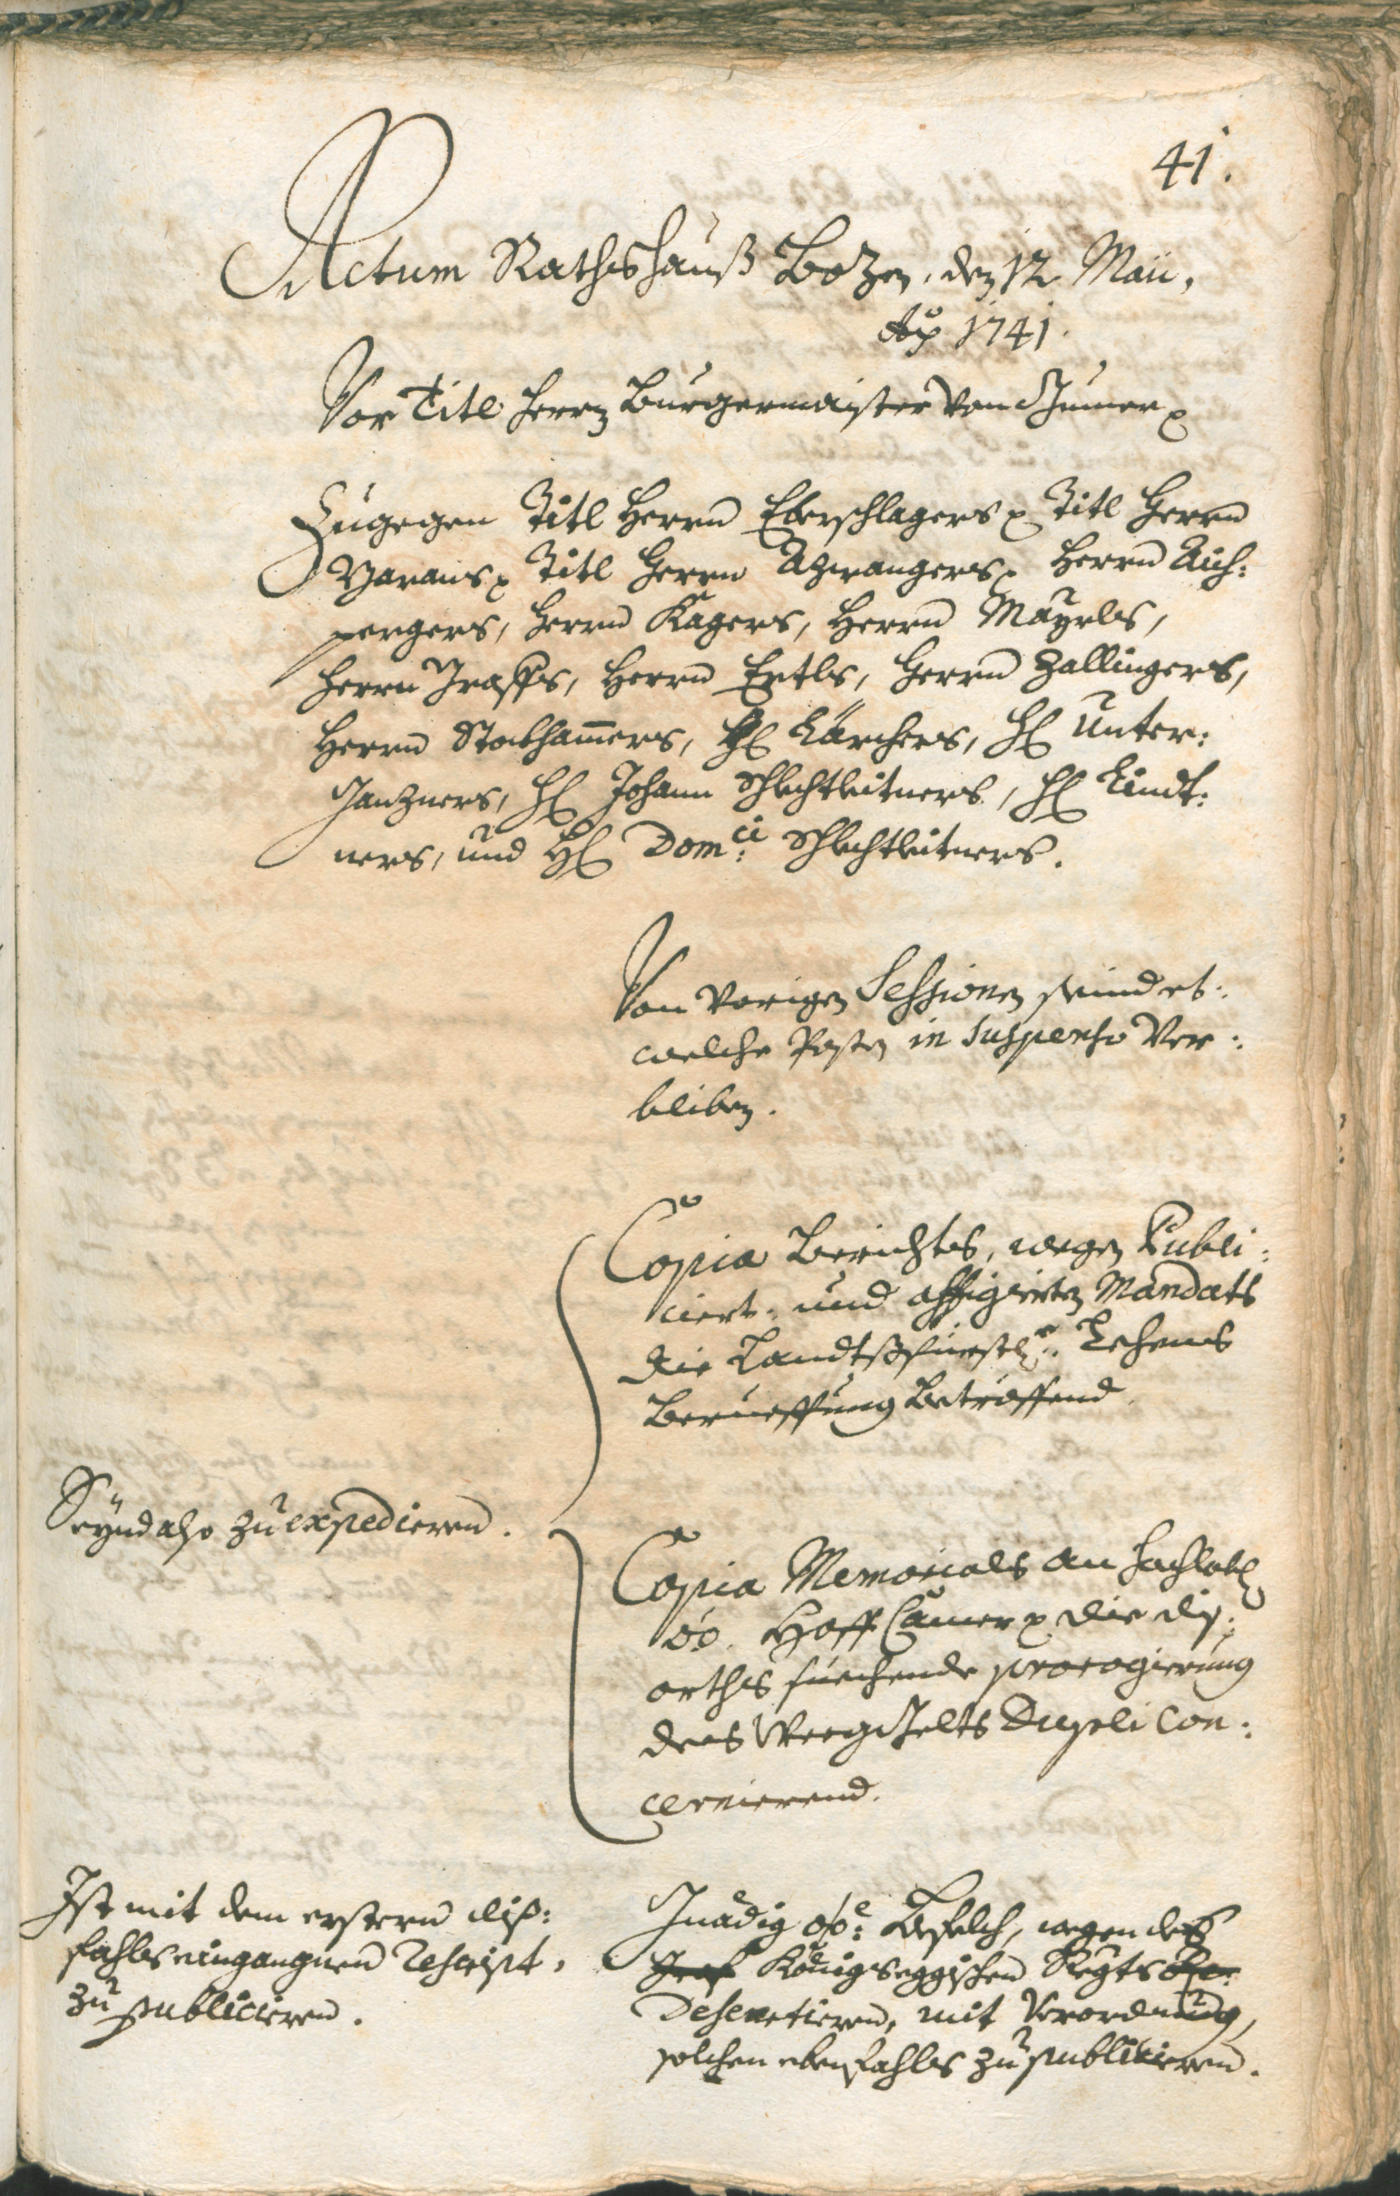 41.
Actum Rathshauß Bozen, den 12 Maii,
Ao 1741.
Vor Titl Herrn Burgermaister von Gumer
Zugegen Titl Herrn Eberschlagers Titl Herrn
Titl Herrn Azwangers Herrn Aich:
pergers, Herrn Kagers, Herrn Mayrls,
Herrn Graffs, Herrn Ertls, Herrn Zallingers,
Herrn Stokhamers, H Lärchers, H Unter:
Ganzners, H Johann Schlechtleitners, H Lindt:
ners, und H Domci: Schlechtleitners.
Von vorigen Sessionen seind et:
welche Posten in suspenso ver:
bliben.
Copia Berichts, wegen Publi:
ciert: und affigierten Mandats
die Landtsfürstl: Lehens
Berueffung betreffend.
Seynd also zu expedieren.
Copia Memorials an hochlobl
öö. Hoff Camer die diß:
orths suechende prorogierung
des Weeggelts Dupli con:
cernierend.
Ist mit dem erstern diß:
fahls eingangnen Rescript,
zu publicieren.
Gnädig öö: Befelch, wegen des
Graf Königseggischen Regts
Desertieren, mit Verordnung,
solchen ebenfahls zu publicieren.